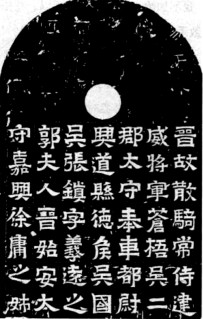 晉故散騎常侍建
威將軍蒼梧吳二
郡太守奉車都尉
興道縣德侯吳國
吳張鎮字義遠之
郭夫人晉始安太
守嘉興徐庸之姊